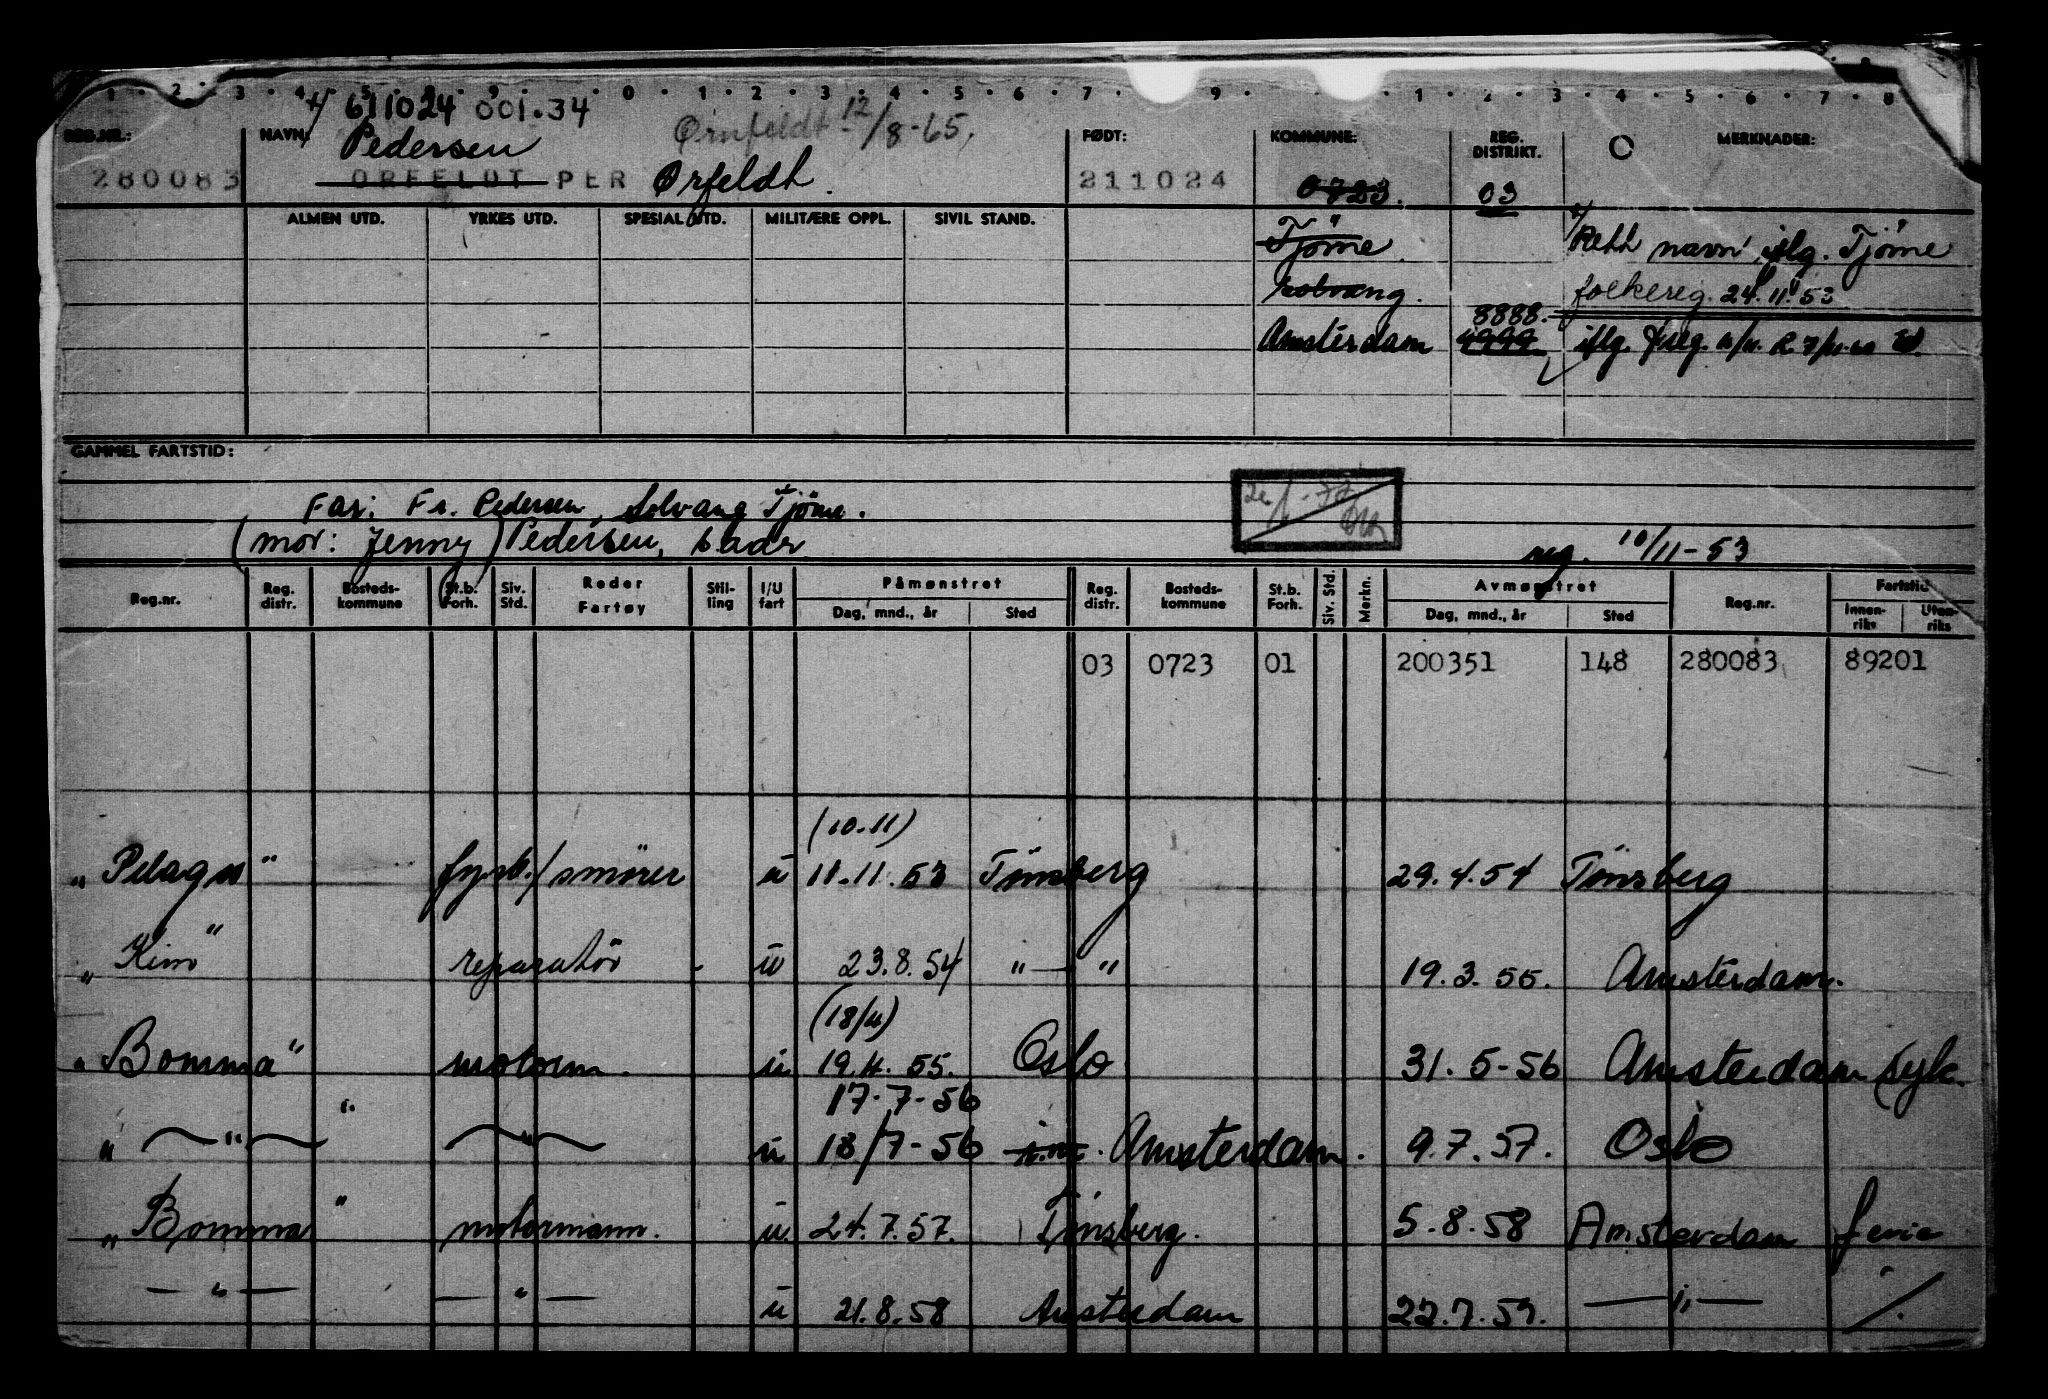 1 · 2 · 3 · 4 · 5 · 8 · 9 · 0 · 1 · 2 · 3 · 4 · 5 · 6 · 7 · 9 · 1 · 2 · 3 · 4 · 5 · 6 · 7 · 8
611024 001.34 Ørnfeldt 12/8-65.
REG.NR.: NAVN: Pedersen FØDT: KOMMUNE: REG. DISTRIKT. O MERKNADER:
280083 ORFELDT PER Ørfeldt. 211024 0723. 03
ALMEN UTD. YRKES UTD. SPESIAL UTD. MILITÆRE OPPL. SIVIL STAND. Tjöme x/ Rett navn iflg. Tjöme
Solvang. folkereg. 24.11.53
8888.
Amsterdam 4999 iflg.
GAMMEL FARTSTID:
Far: Fr. Pedersen, Solvang Tjöme.
(mor: Jenny) Pedersen, s. adr reg. 10/11-53
Reg.nr. Reg. distr. Bosteds-kommune St.b. Forh. Siv. Std. Reder Fartøy Stil-ling I/U fart Påmønstret Dag, mnd., år Sted Reg. distr. Bosteds-kommune St.b. Forh. Siv. Std. Merkn. Avmønstret Dag, mnd., år Sted Reg.nr. Fartstid Innen-riks Uten-riks
03 0723 01 200351 148 280083 89201
(10.11)
"Pelagos" fyrb./smörer u 11.11.53 Tönsberg 29.4.54 Tönsberg
"Kim" reparatör - u 23.8.54 " — " 19.3.55. Amsterdam.
(18/4)
"Bomma" motorm. u 19.4.55. Oslo 31.5-56 Amsterdam (syk.
17-7-56
" — " — " — " — u 18/7-56 Amsterdam. 9.7.57. Oslo
"Bomma" motormann. u 24.7.57. Tönsberg. 5.8.58 Amsterdam ferie
— " — — " — u 21.8.58 Amsterdam 22.7.59. — " — ./.